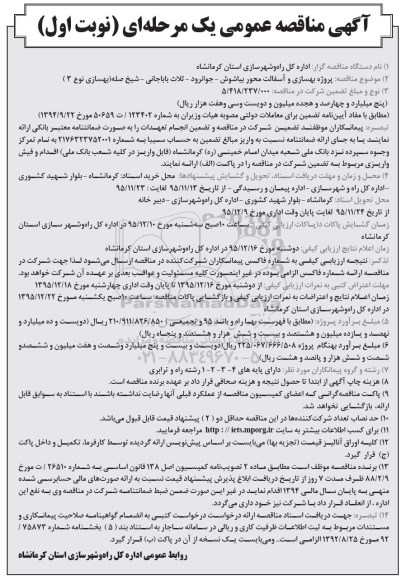 آگهی مناقصه عمومی یک مرحله‌ای (نوبت اول)
۱) نام دستگاه مناقصه گزار: اداره کل راه‌وشهرسازی استان کرمانشاه
۲) موضوع مناقصه: پروژه بهسازی و آسفالت محور بیاشوش - جوانرود - ثلاث باباجانی - شیخ صله(بهسازی نوع ۳)
۳) نوع و مبلغ تضمین شرکت در مناقصه: ۵/۴۱۸/۲۳۷/۰۰۰
(پنج میلیارد و چهارصد و هجده میلیون و دویست وسی وهفت هزار ریال)
(مطابق با مفاد آیین‌نامه تضمین برای معاملات دولتی مصوبه هیات وزیران به شماره ۱۲۳۴۰۲/ ت ۵۰۶۵۹ مورخ ۱۳۹۴/۹/۲۲)
تبصره: پیمانکاران موظفند تضمین شرکت در مناقصه و تضمین انجام تعهدات را به صورت ضمانتنامه معتبر بانکی ارائه
نمایند یا به جای ارائه ضمانتنامه نسبت به واریز مبالغ تضمین به حساب سیبا به شماره ۲۱۷۶۳۳۲۷۵۲۰۰۱ به نام تمرکز
وجوه سپرده نزد بانک ملی شعبه میدان امام خمینی (ره) کرمانشاه (قابل واریز در کلیه شعب بانک ملی) اقدام و فیش
واریزی مربوط به تضمین شرکت در مناقصه را در پاکت (الف) ارائه نمایند.
۴) محل و زمان و مهلت دریافت اسناد، تحویل و گشایش پیشنهادها: محل خرید اسناد: کرمانشاه - بلوار شهید کشوری
-اداره کل راه و شهرسازی - اداره پیمان و رسیدگی - از تاریخ ۹۵/۱۱/۱۳ لغایت: ۹۵/۱۱/۲۳
محل تحویل اسناد: کرمانشاه - بلوار شهید کشوری - اداره کل راه‌وشهرسازی - دبیر خانه
از تاریخ ۹۵/۱۱/۲۴ لغایت پایان وقت اداری مورخ ۹۵/۱۲/۹
زمان گشایش پاکات ارزیابی کیفی: ساعت ۱۰صبح سه‌شنبه مورخ ۹۵/۱۲/۱۰ در اداره کل راه‌وشهر سازی استان
کرمانشاه
زمان اعلام نتایج ارزیابی کیفی: دوشنبه مورخ ۹۵/۱۲/۱۶ در اداره کل راه‌وشهرسازی استان کرمانشاه
تذکر: نتیجه ارزیابی کیفی به شماره فاکس پیمانکاران شرکت‌کننده در مناقصه ارسال می‌شود لذا جهت شرکت در
مناقصه ارائه شماره فاکس الزامی بوده در غیر اینصورت کلیه مسئولیت و عواقب بعدی بر عهده آن شرکت خواهد بود.
مهلت اعتراض کتبی به نمرات ارزیابی کیفی: از دوشنبه مورخ ۱۳۹۵/۱۲/۱۶ تا پایان وقت اداری چهارشنبه مورخ ۱۳۹۵/۱۲/۱۸
زمان اعلام نتایج و اعتراضات به نمرات ارزیابی کیفی و بازگشایی پاکات مناقصه: ساعت ۱۰صبح یکشنبه مورخ ۱۳۹۵/۱۲/۲۲
در اداره کل راه‌وشهرسازی استان کرمانشاه
۵) مبلغ برآورد پروژه: (مطابق با فهرست بها راه و باند ۹۵ و تجمیعی): ۲۱۰/۹۱۱/۸۲۶/۸۵۰ ریال (دویست و ده میلیارد و
نهصد و یازده میلیون و هشتصد و بیست و شش هزار و هشتصد و پنجاه ریال)
۶) مبلغ برآورد بهنگام پروژه ۲۲۵/۰۶۷/۶۶۶/۵۰۸ ریال(دویست و بیست و پنج میلیارد وشصت و هفت میلیون و ششصدو
شصت و شش هزار و پانصد و هشت ریال)
۷) رشته و گروه پیمانکاران مورد نظر: دارای پایه های ۴-۳-۲-۱ رشته راه و ترابری
۸) هزینه چاپ آگهی از ابتدا تا حصول نتیجه و هزینه صحافی قرار داد بر عهده برنده مناقصه است.
۹) پاکت مناقصه‌گرانی که اعضای کمیسیون مناقصه از عملکرد قبلی آنها رضایت نداشته باشند با استناد به سوابق قابل
ارائه، بازگشایی نخواهد شد.
۱۰) حد نصاب تعداد شرکت‌کننده‌ها در این مناقصه حداقل دو (۲) پیشنهاد قیمت قابل قبول می‌باشد.
۱۱) برای کسب اطلاعات بیشتر به سایت http://iets.mporg.ir مراجعه فرمایید.
۱۲) کلیه اوراق آنالیز قیمت (تجزیه بها) می‌بایست بر اساس پیش‌نویس ارائه گردیده توسط کارفرما، تکمیل و داخل پاکت
(ج) قرار گیرد.
۱۳) برنده مناقصه موظف است مطابق ماده ۲ تصویبنامه کمیسیون اصل ۱۳۸ قانون اساسی به شماره ۲۶۵۱۰ / ت مورخ
۸۸/۲/۹ ظرف مدت ۷ روز از تاریخ دریافت ابلاغ پذیرش پیشنهاد قیمت نسبت به ارائه صورت‌های مالی حسابرسی شده
منهی به پایان سال مالی ۱۳۹۴ اقدام نمایند در غیر این صورت ضمن ضبط ضمانتنامه شرکت در مناقصه وی به نفع این
اداره، از انعقاد قرار داد با شرکت نیز خود داری می‌گردد.
۱۴) تبصره: جهت دریافت اسناد مناقصه ارائه درخواست درخواست کتبی به انضمام گواهینامه صلاحیت پیمانکاری و
مستندات مربوط به ثبت اطلاعات ظرفیت کاری و ریالی در سامانه ساجار به استناد بند (۵) بخشنامه شماره ۷۵۸۷۳/
۹۲ مورخ ۱۳۹۲/۸/۲۵ الزامی است. ومی‌بایست یک نسخه از آن در پاکت (ب) قرار گیرد.
روابط عمومی اداره کل راه‌وشهرسازی استان کرمانشاه
ParsNamadData
۰۲۱-۸۸۳۴۹۶۷۰-۵